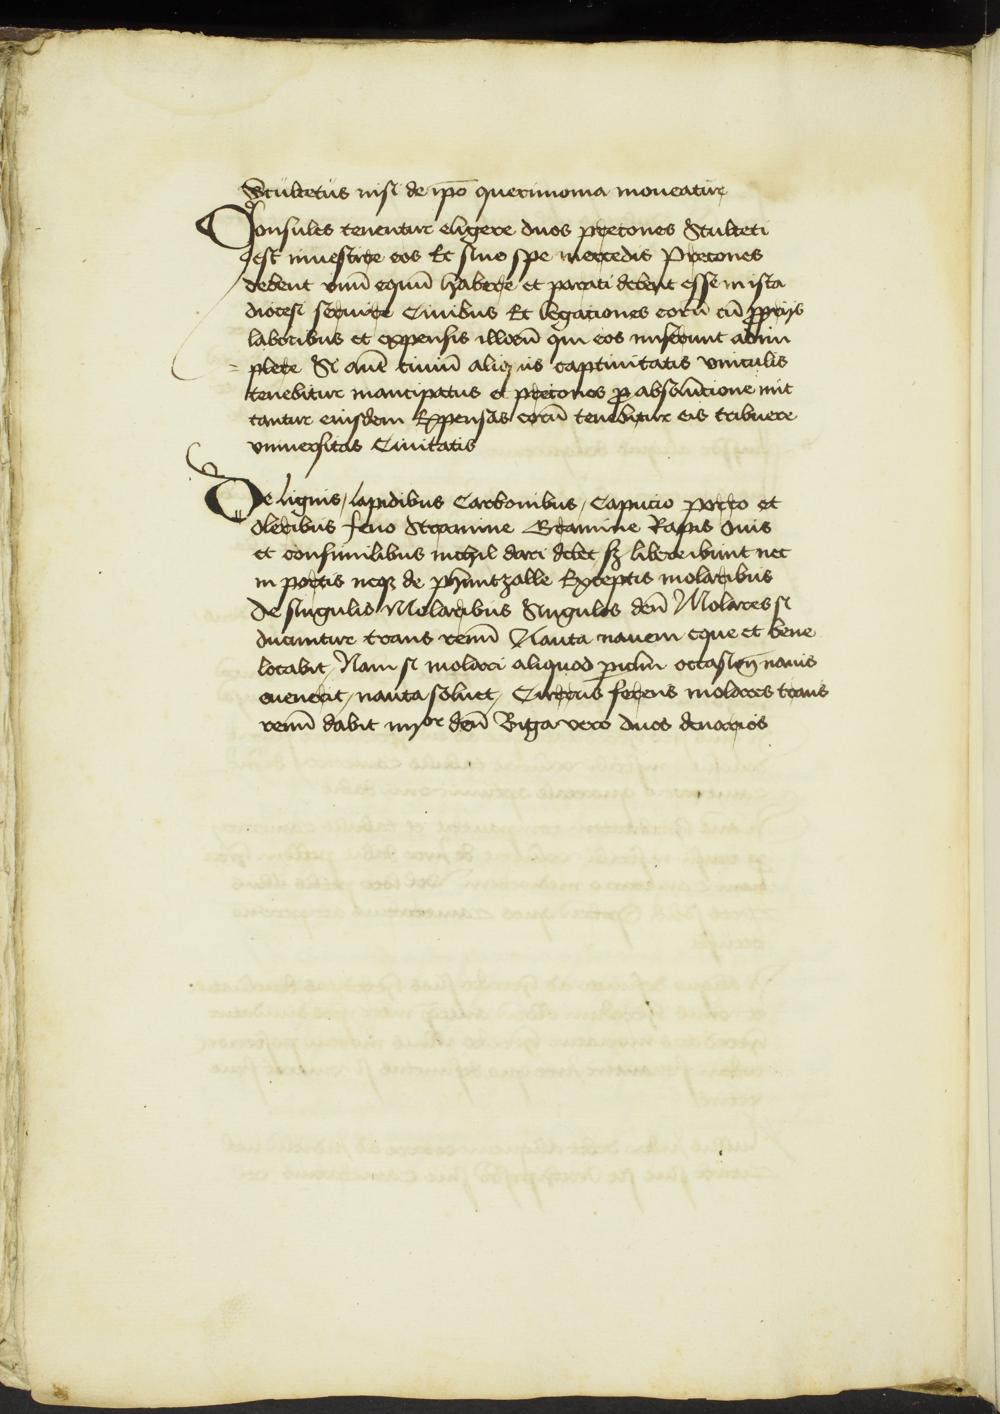 Scultetus nisi de ip̄o querimonia moueatur
Consules tenentur eligere duos precones Sculteti
est inuestire eos Et siue spe mercedis Precones
debent vnū equū habere et parati debent esse in ista
diocesi seruire Ciuibus Et legationes eorū cū propriis
laboribus et expensis illorū qui eos miserunt adim
plere Si autē ciuiū aliquis captiuitatis vinculis
tenebitur mancipatus et precones pro absolucione mit
tantur eiusdem Expensas eorū tenebitur eis tribuere
vniuersitas Ciuitatis
De lignis, lapidibus Carbonibus, Caputio porro et
oleribus feno Stramine Gramine Rapis Ouis
et consimilibus nichil dari debet sz libere ibunt nec
in portis neqz de phuntzalle Exceptis molaribus
De singulis Molaribus Singulos deñ Molares si
ducuntur trans renū Nauta nauem eque et bene
locabit, Nam si molari aliquod pericłm occasione nauis
euenerit, nauta soluet, Currus ferens molares trans
renū dabit iiijor deñ Biga vero duos denarios